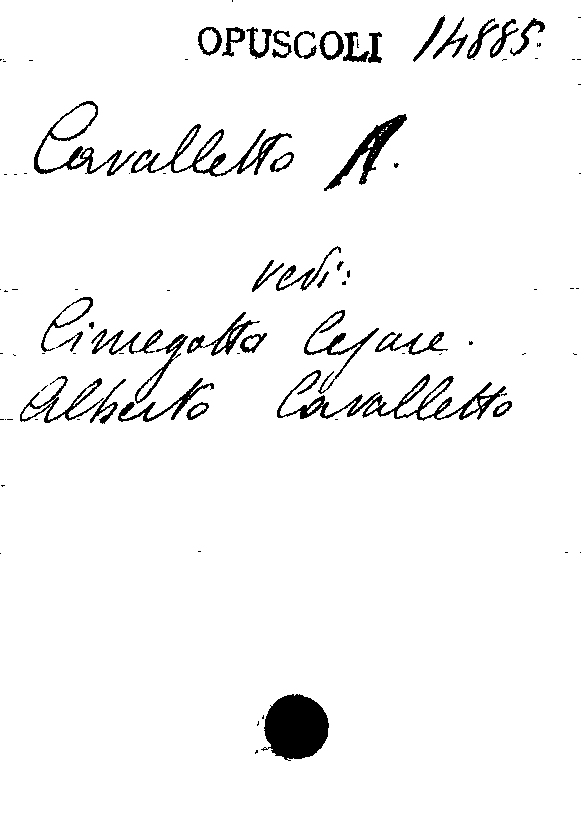 OPUSCOLI 14885.
Cavalletto A.
vedi:
Cimegotta Cesare.
Alberto Cavalletto